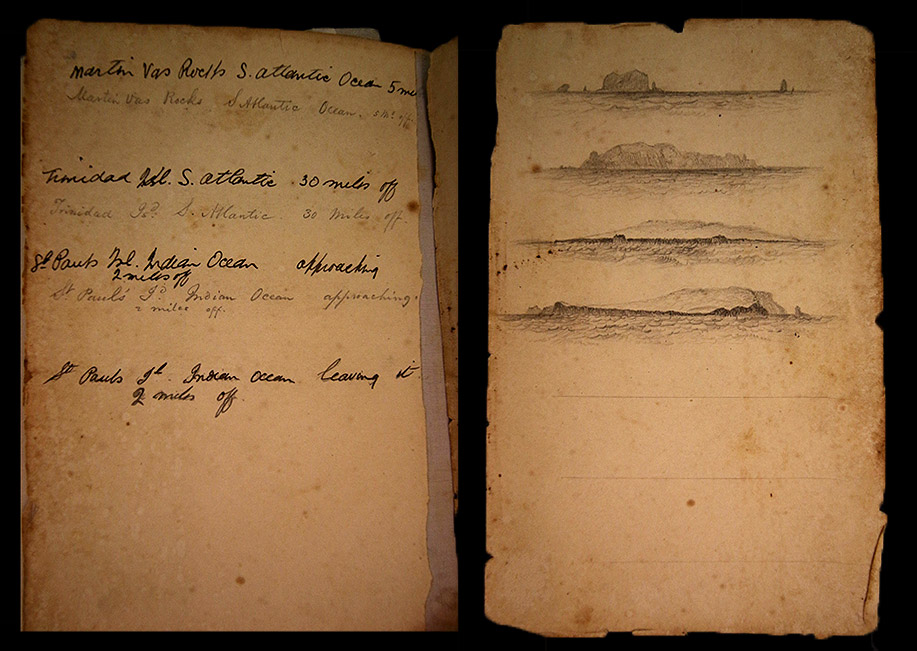 Martin Vas Rocks S. Atlantic Ocean 5 mi
Martin Vas Rocks S Atlantic Ocean. 5 Ms off
Trinidad Isl. S. Atlantic 30 miles off
Trinidad Isd. S. Atlantic. 30 Miles off.
St Pauls Isl. Indian Ocean approaching
2 miles off
St Paul's Id Indian Ocean approaching.
2 miles off.
St Pauls Id. Indian Ocean leaving it.
2 miles off.